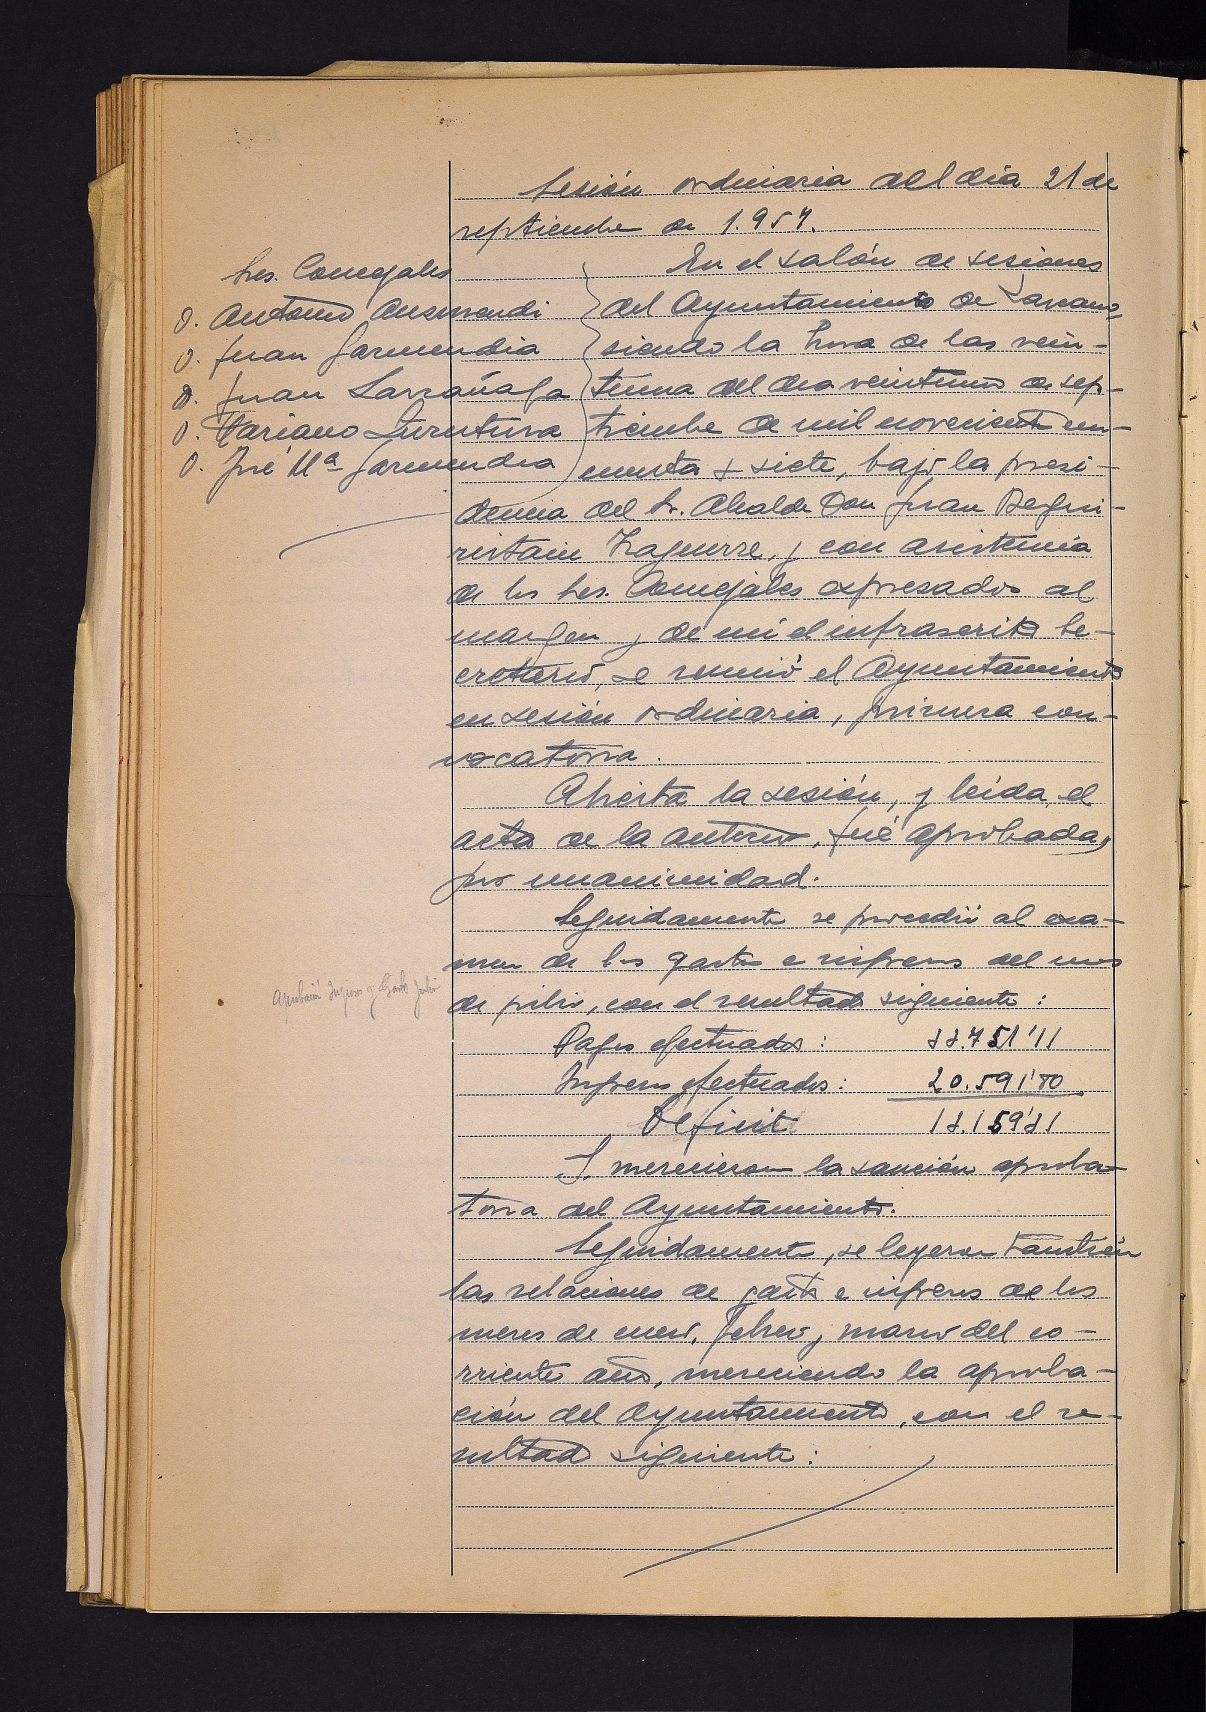 Sesión ordinaria del día 21 de
septiembre de 1.957.
Sres. Concejales
D. Antonio Ansorrendi
D. Juan Garmendia
D. Juan Larrañaga
D. Mariano Iurutura
D. José Mª Garmendia
En el salón de sesiones
del Ayuntamiento de Lazcano,
siendo la hora de las vein-
tiuna del dia veintiuno de sep-
tiembre de mil novecientos cin-
cuenta y siete, bajo la presi-
dencia del Sr. Alcalde Don Juan Begui-
ristain Izaguirre, y con asistencia
de los Sres. Concejales expresados al
margen y de mí el infrascrito Se-
cretario, se reunió el Ayuntamiento
en sesión ordinaria, primera con-
vocatoria.
Abierta la sesión, y leída el
acta de la anterior, fué aprobada,
por unanimidad.
Seguidamente se procedió al exa-
men de los gastos e ingresos del mes
Aprobación Ingresos y Gastos Julio
de julio, con el resultado siguiente:
Pagos efectuados: 38.751'11
Ingresos efectuados: 20.591'80
Déficit 18.159'31
Y, merecieron la sanción aproba-
toria del Ayuntamiento.
Seguidamente, se leyeron también
las relaciones de gastos e ingresos de los
meses de enero, febrero y marzo del co-
rriente año, mereciendo la aproba-
ción del Ayuntamiento, con el re-
sultado siguiente: